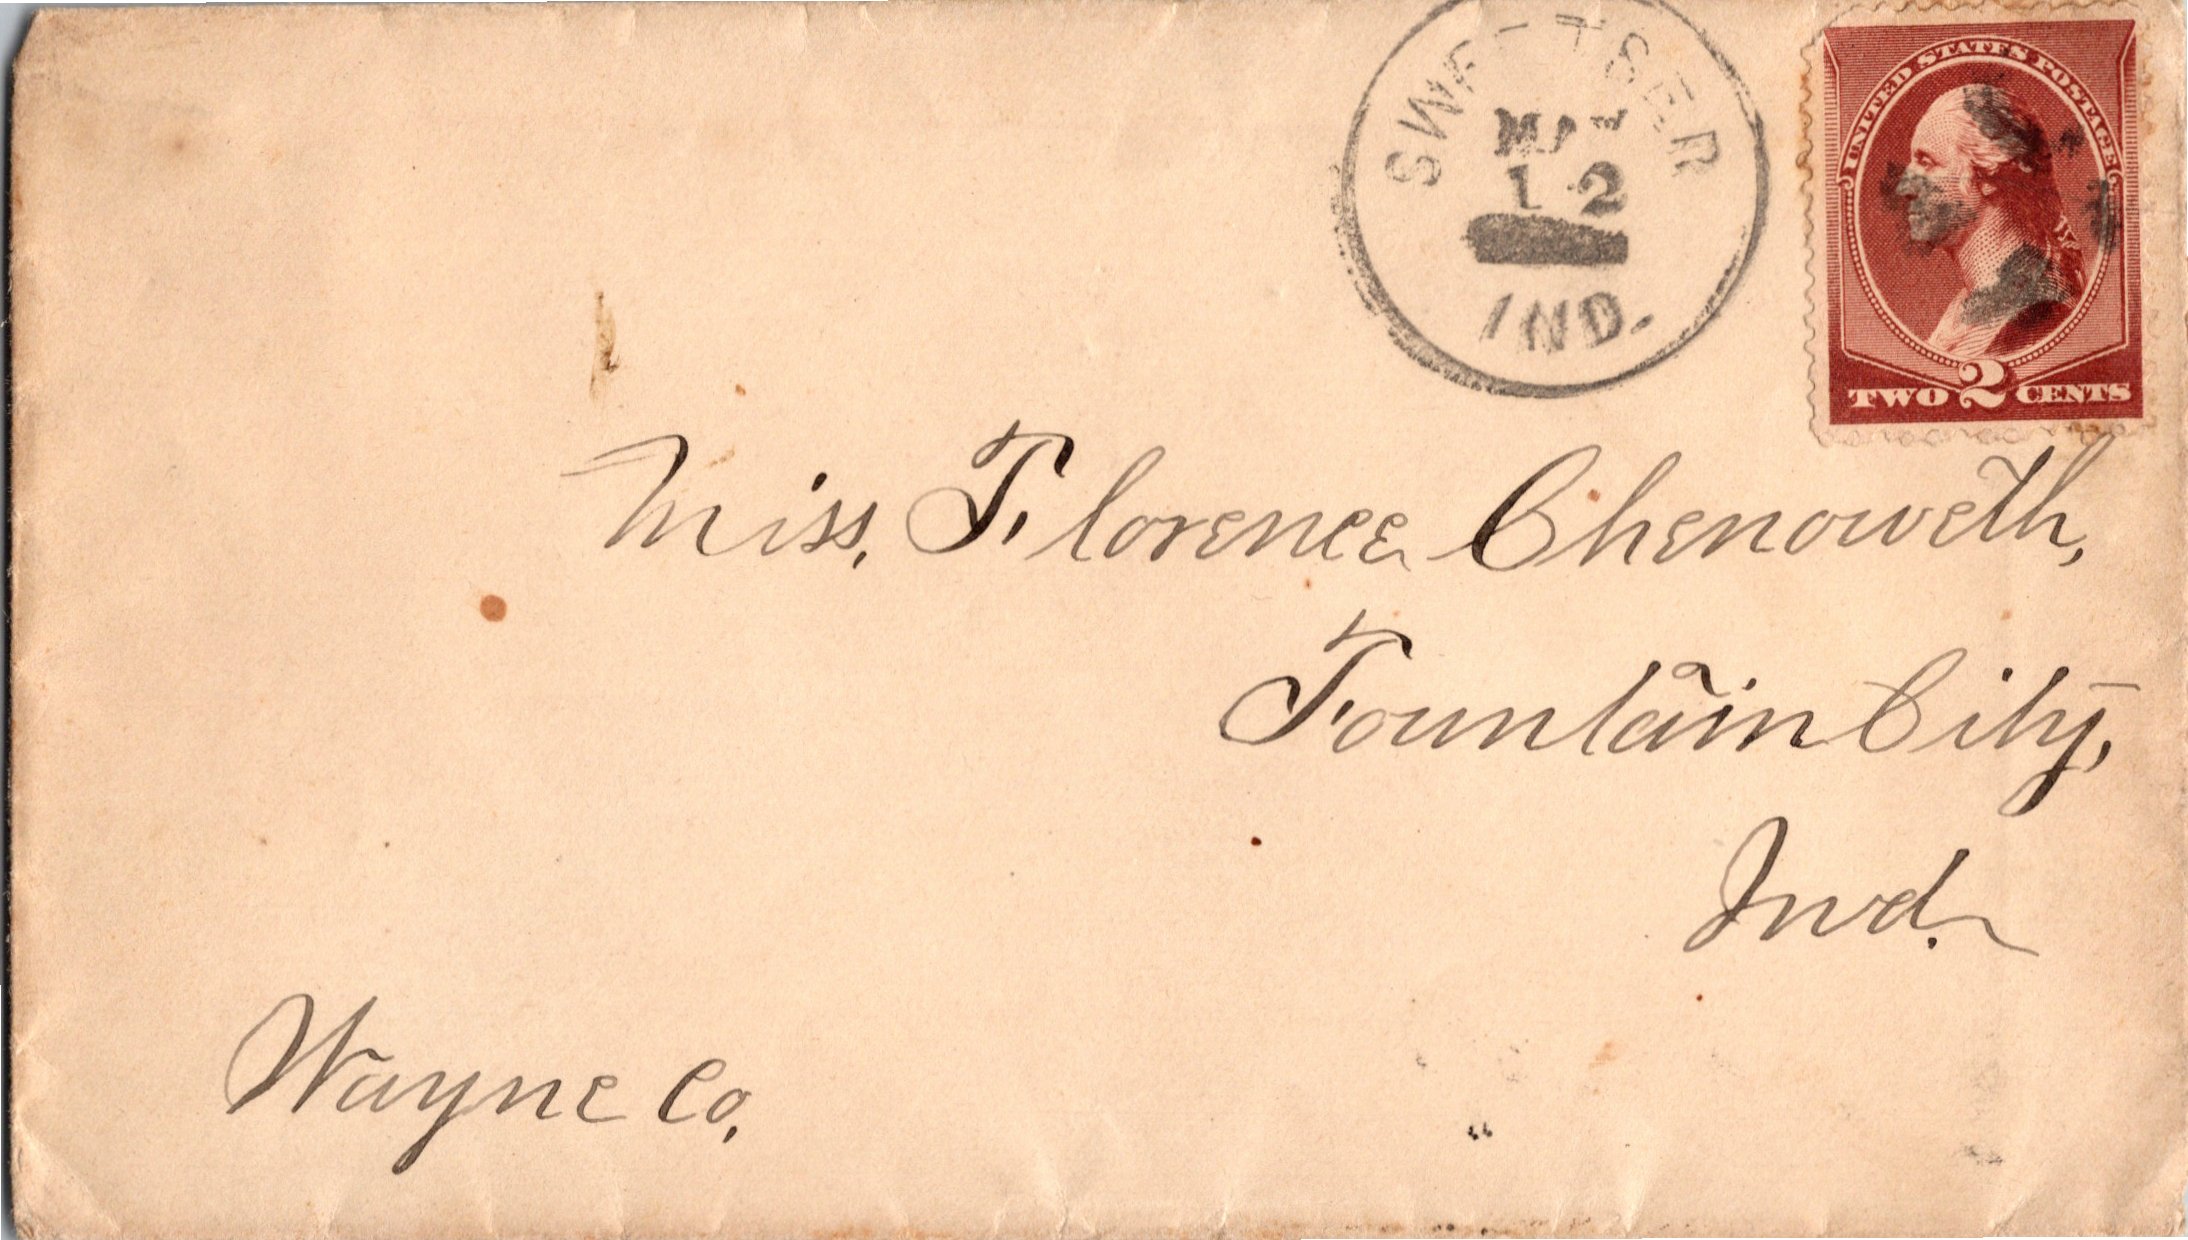 SWEETSER
MAY
12
IND.
UNITED STATES POSTAGE
TWO 2 CENTS
Miss, Florence Chenoweth,
Fountain City,
Ind.
Wayne Co,